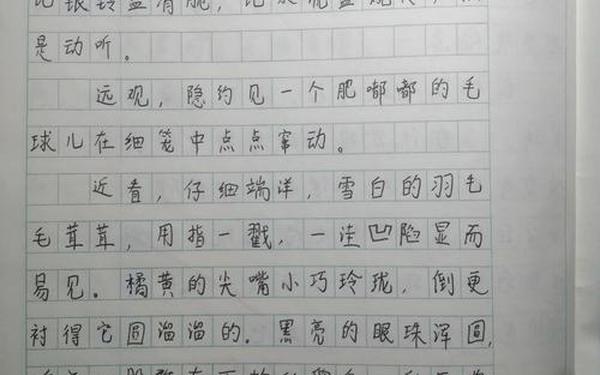 是动听。
远观，隐约见一个肥嘟嘟的毛
球儿在细笼中点点窜动。
近看，仔细端洋，雪白的羽毛
毛茸茸，用指一戳，一洼凹陷显而
易见。橘黄的尖嘴小巧玲珑，倒更
衬得它圆溜溜的。黑亮的眼珠浑圆，